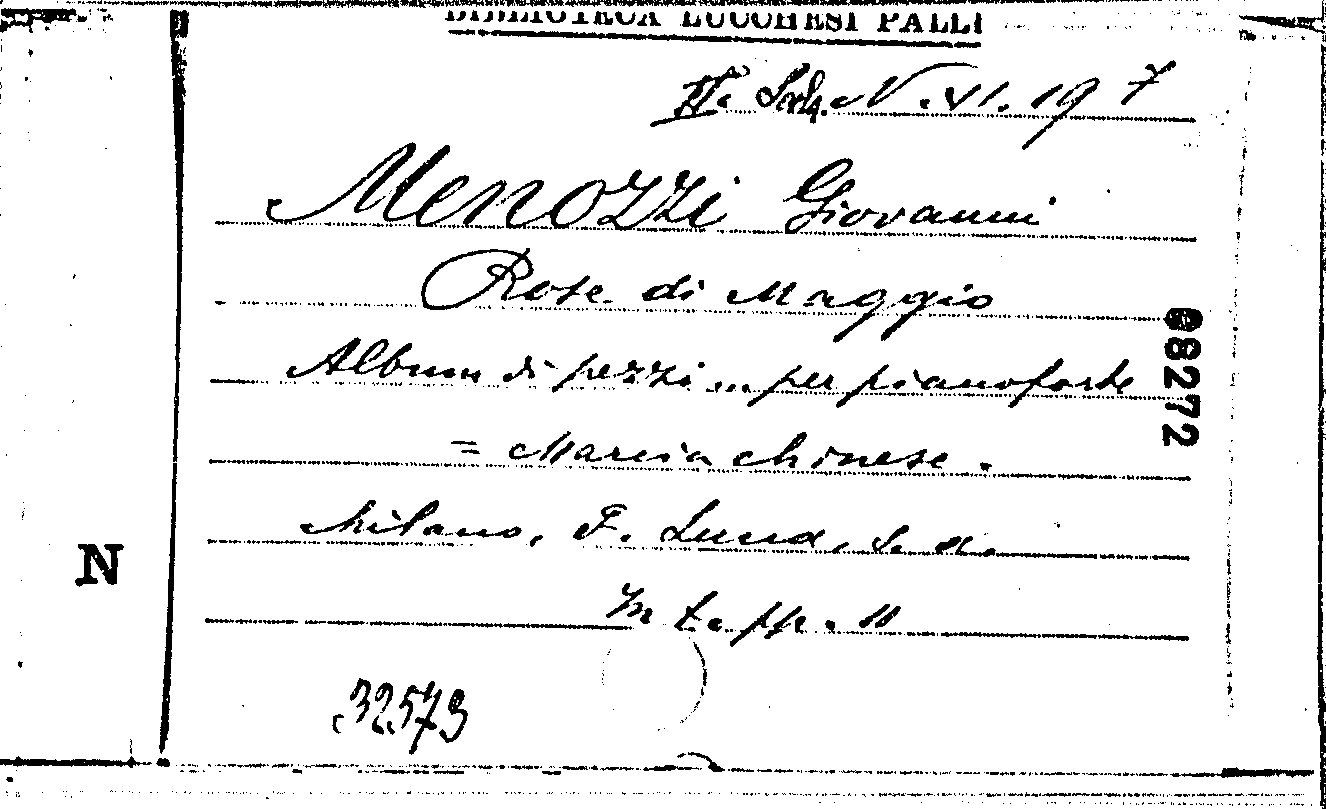 BIBLIOTECA LUCCHESI PALLI
N. VI. 19 7
Menozzi Giovanni
Rose di Maggio
Album di pezzi... per pianoforte
= Marcia chinese.
Milano, F. Lucca, s. a.
In t. pp. 11
N
32573
88272